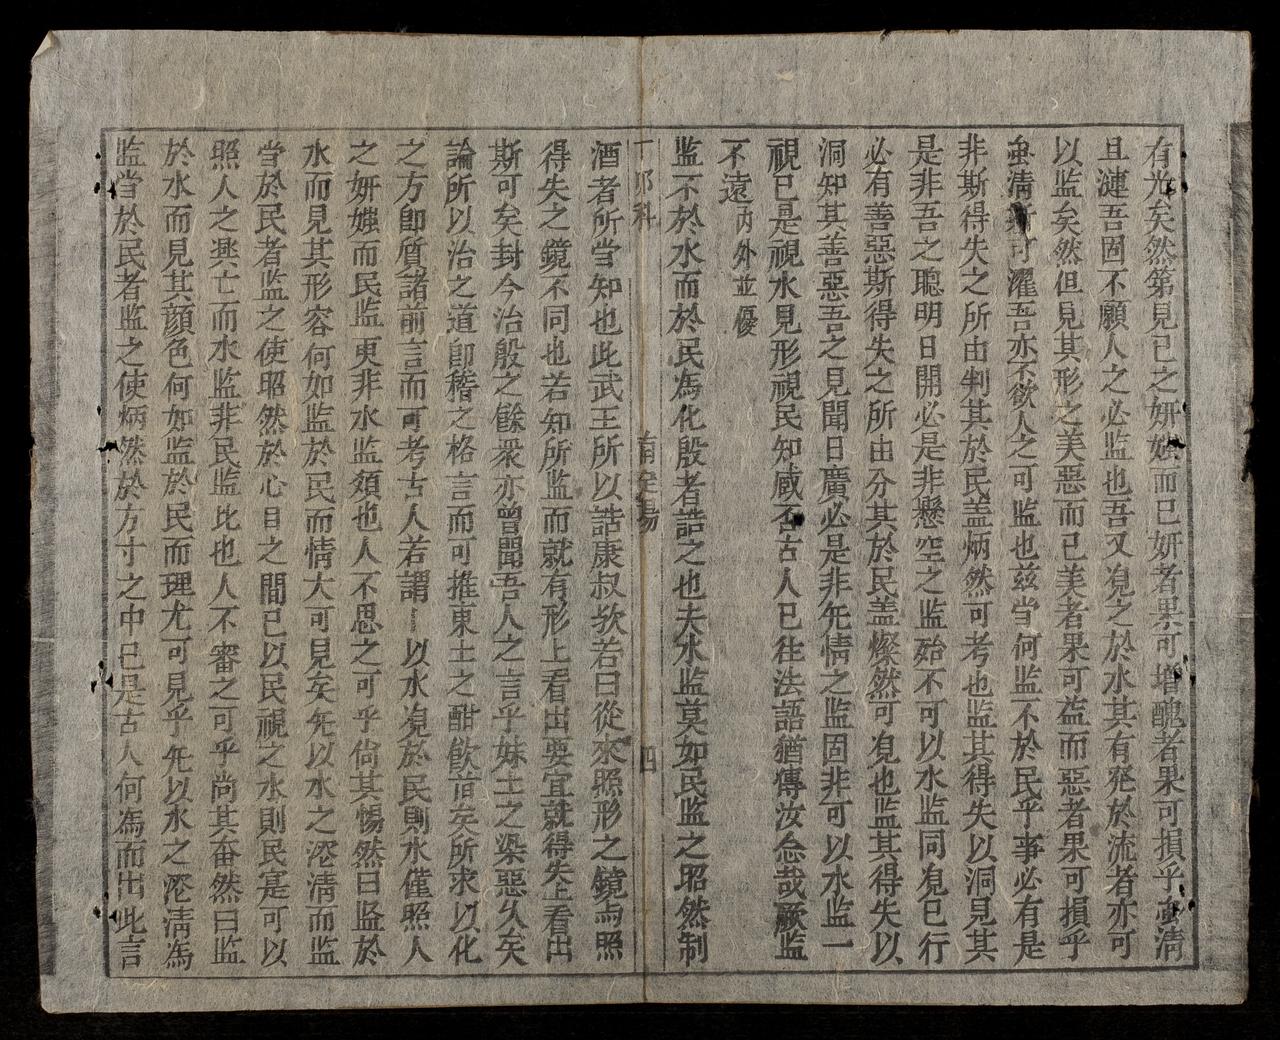 有光矣然第見已之妍媸而已妍者果可增醜者果可損乎虽清
且漣吾固不願人之必監也吾又覌之於水其有兖於流者亦可
以監矣然但見其形之美惡而已美者果可益而惡者果可損乎
虽清斯可濯吾亦不欲人之可監也兹当何監不於民乎事必有是
非斯得失之所由判其於民盖炳然可考也監其得失以洞見其
是非吾之聪明日開必是非懸空之監殆不可以水監同覌已行
必有善惡斯得失之所由分其於民盖燦然可覌也監其得失以
洞知其善惡吾之見聞日廣必是非旡情之監固非可以水監一
視已是視水見形視民知咸否古人已往法語猶傳汝念哉厥監
不遠内外並優
監不於水而於民為化殷者誥之也夫水監莫如民監之昭然制
丁卯科
四
酒者所当知也此武王所以誥康叔欤若曰從來照形之鏡与照
得失之鏡不同也若知所監而就有形上看出要宜就得失上看出
斯可矣封今治殷之餘衆亦曾聞吾人之言乎妹土之染惡久矣
論所以治之道卽稽之格言而可推東土之酣飮有矣所求以化
之方卽質諸前言而可考古人若謂以水覌於民則水僅照人
之妍媸而民監更非水監類也人不思之可乎倘其惕然曰监於
水而見其形容何如監於民而情大可見矣旡以水之滛清而监
当於民者監之使昭然於心目之間已以民視之水則民寔可以
照人之興亡而水监非民監比也人不審之可乎尚其奋然曰监
於水而見其顔色何如监於民而理尤可見乎旡以水之滛清為
监当於民者监之使炳然於方寸之中已是古人何為而出此言